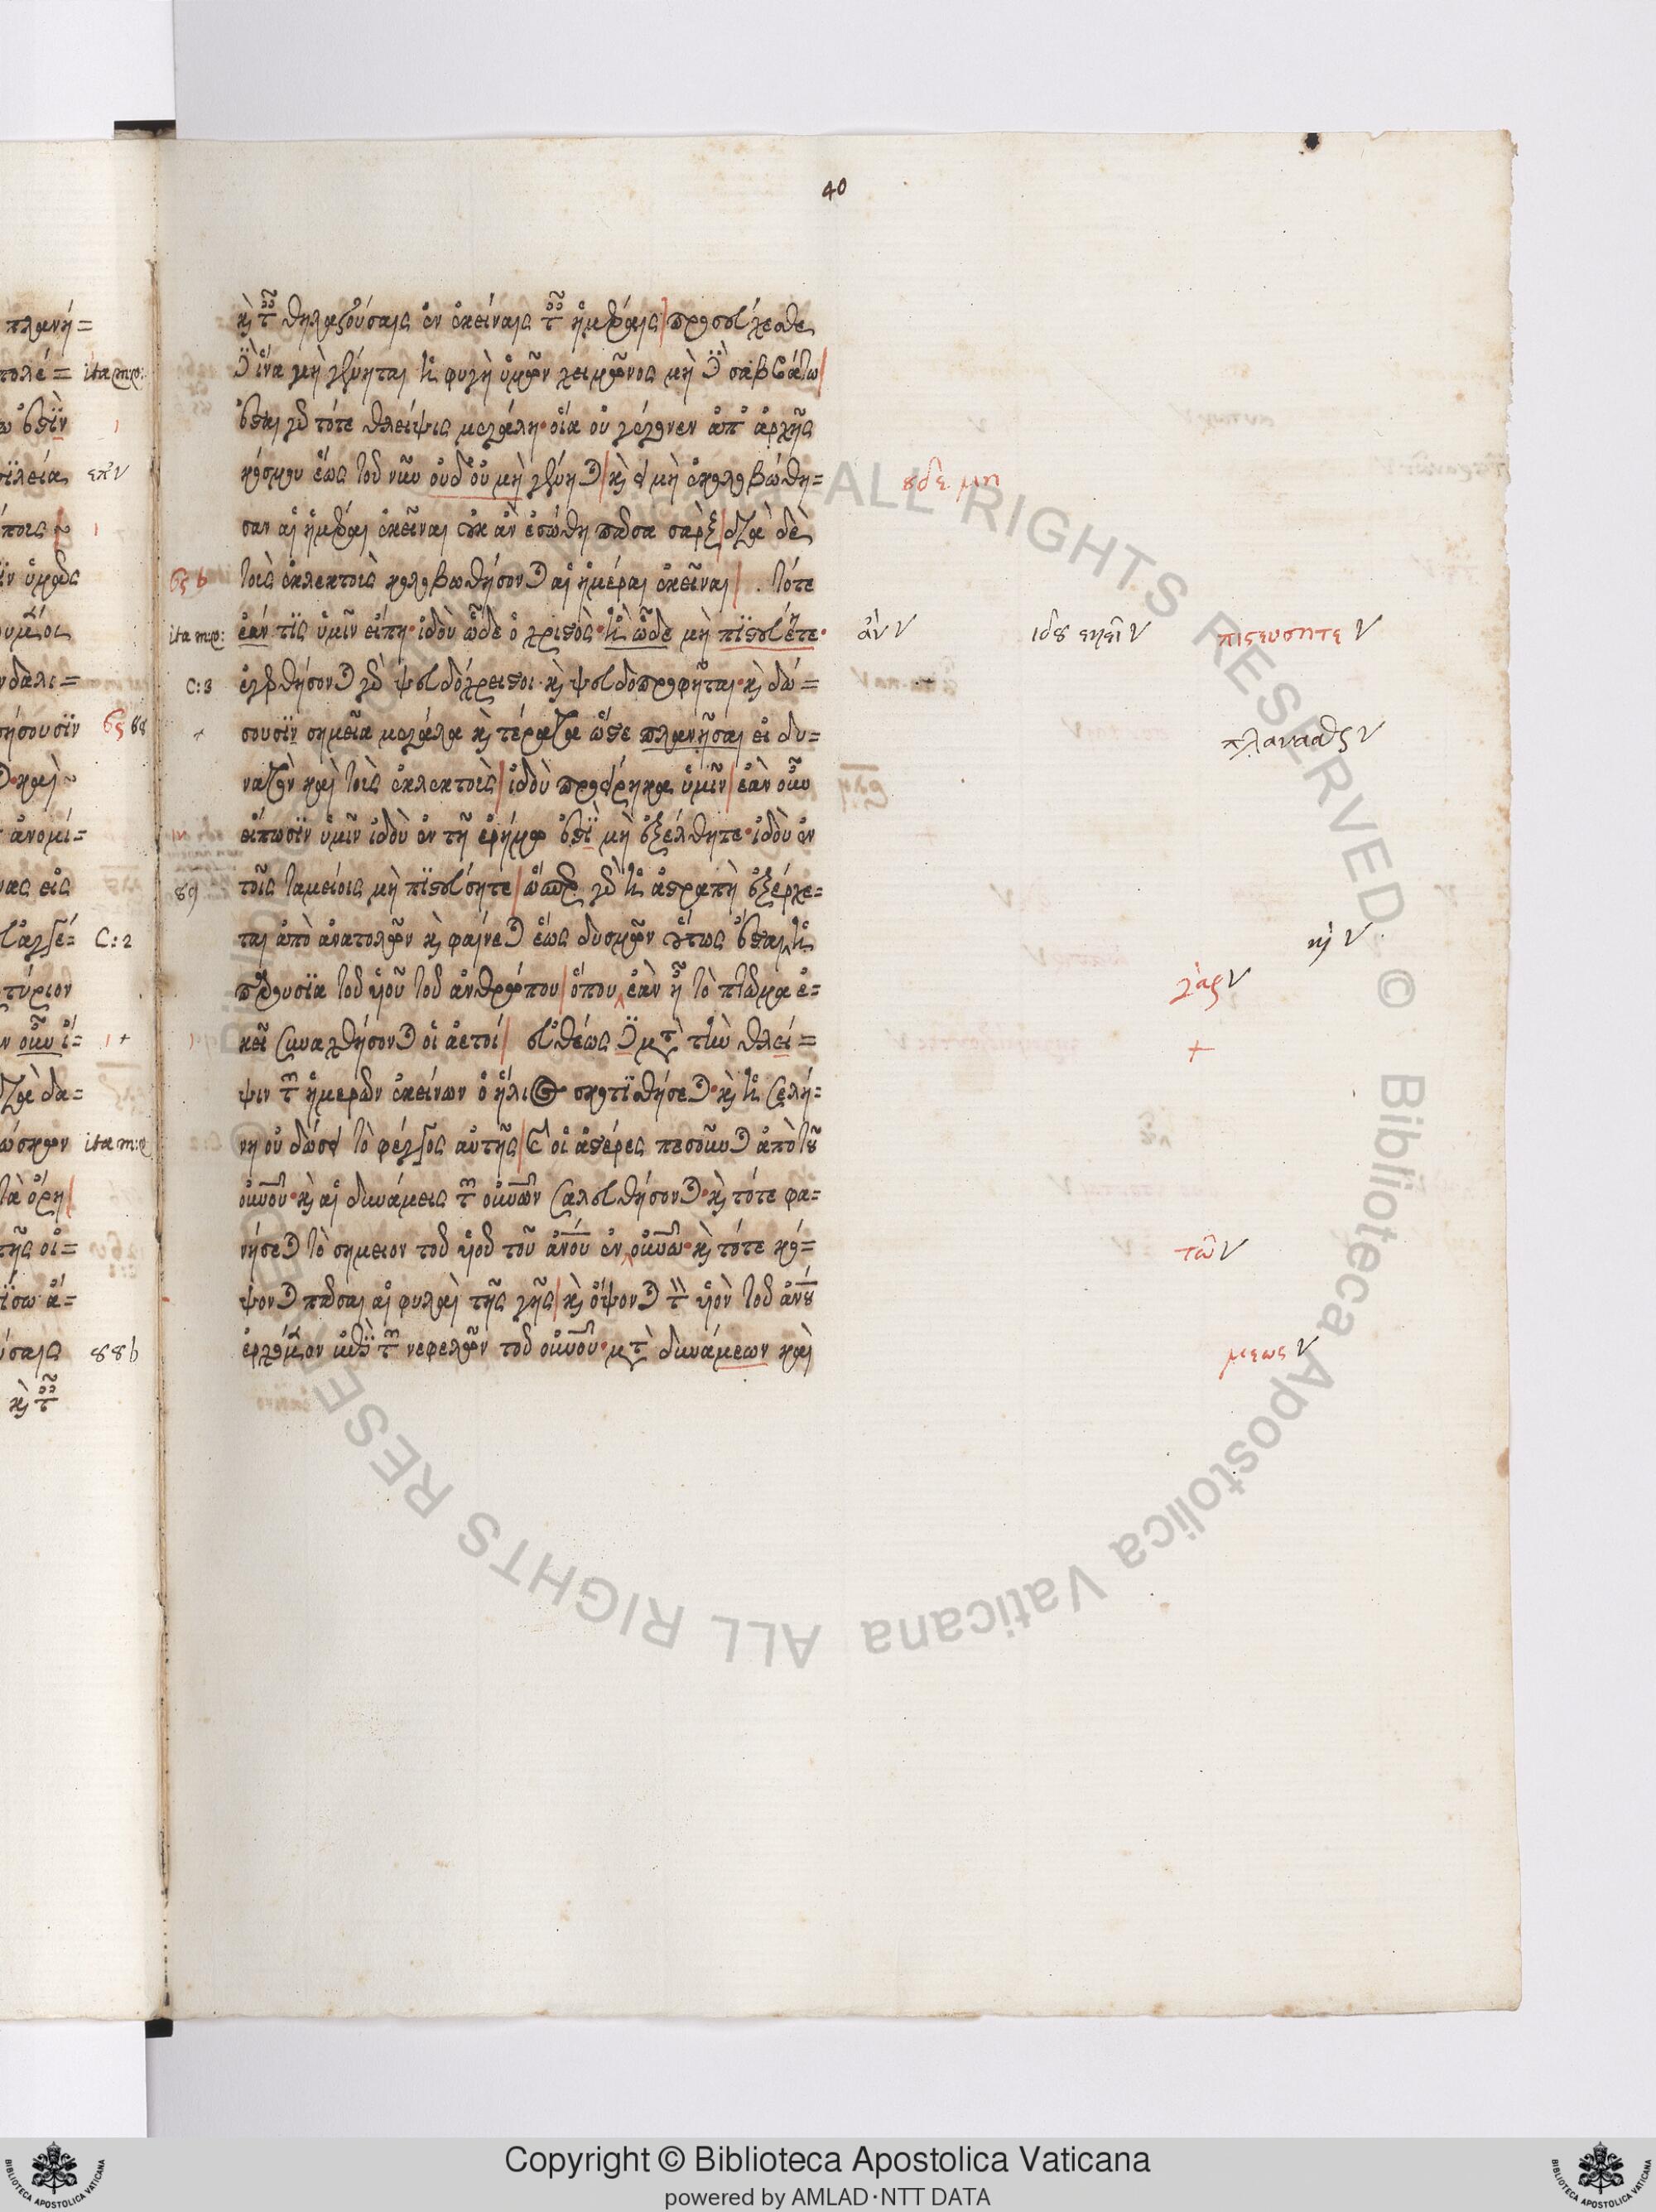 40
κ̀ τ͂ θηλαζούσαις ἐν ἐκείναις τ͂ ἡμέραις προσεύχεσθε
δὲ ἵνα μὴ γένηται ἡ φυγὴ ὑμῶν χειμῶνος μὴ δὲ σαββάτω
ἔσται γὰρ τότε θλείψις μεγάλη· οἵα οὐ γέγονεν ἀπ' ἀρχῆς
κόσμου ἕως τοῦ νῦν οὐδ' οὐ μὴ γένηται κὶ εἰ μὴ ἐκολοβώθη=
ȣδε μη
σαν αἱ ἡμέραι ἐκεῖναι οὐκ ἂν ἐσώθη πᾶσα σαρξ διὰ δὲ
τοὺς ἐκλεκτοὺς κολοβωθήσονται αἱ ἡμέραι ἐκεῖναι . τότε
ita m:p: ἐάν τϊς ὑμῖν εἴπη· ἰδοὺ ὧδε ὁ χριστὸς· ἢ ὧδε μὴ πϊστεύετε·
ἀν ν ιδȣ εκεῖ ν πιστευσητε ν
C:3 ἐγερθήσονται γὰρ ψευδόχρειστοι· κὶ ψευδοπροφῆται· κὶ δώ=
+ σουσϊν σημεῖα μεγάλα κὶ τέρατα ὥστε πλανῆσαι εἰ δυ=
πλανασθε ν
νατὸν καὶ τοὺς ἐκλεκτοὺς ἰδοὺ προείρηκα ὑμῖν ἐὰν οὖν
εἴπωσϊν ὑμῖν ἰδοὺ ἐν τῆ ἐρήμω ἐστὶ μὴ ἐξέλθητε· ἰδοὺ ἐν
89 τοῖς ταμείοις μὴ πϊστεύσητε ὥσπερ γὰρ ἡ ἀστραπὴ ἐξέρχε=
ται ἀπὸ ἀνατολῶν κὶ φαίνεται ἕως δυσμῶν οὕτως ἔσται ἡ
κὶ ν
παρουσϊα τοῦ υἱοῦ τοῦ ἀνθρώπου ὅπου ἐὰν ἦ τὸ πτῶμα ἐ=
γὰρ ν
κεῖ συναχθήσονται οἱ ἀετοί εὐθέως δὲ μετὰ τὴν θλεί=
+
ψιν τῶν ἡμερῶν ἐκείνων ὁ ἥλιος σκοτϊσθήσεται· κὶ ἡ σελή=
νη οὐ δώσει τὸ φέγγος αὐτῆς κ̀ οἱ ἀστέρες πεσοῦνται ἀπὸ τȣ͂
οὐνοῦ· κὶ αἱ δυνάμεις τῶν οὐνῶν σαλευθήσονται· κὶ τότε φα=
νήσεται τὸ σημειον τοῦ υἱοῦ τοῦ ἀνοῦ ἐν οὐνῶ· κὶ τότε κό=
τῶ ν
ψονται πᾶσαι αἱ φυλαὶ τῆς γῆς κὶ ὄψονται τὸν υἱὸν τοῦ ἀνȣ
ἐρχόμενον ἐπὶ τῶν νεφελῶν τοῦ οὐνοῦ· μετὰ δυνάμεων καὶ
μεως ν
Copyright © Biblioteca Apostolica Vaticana
powered by AMLAD·NTT DATA